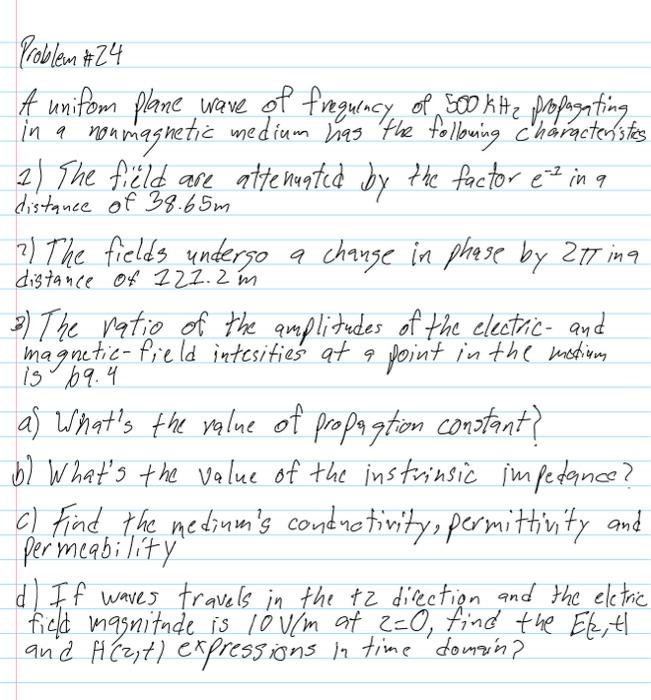 Problem #24
A unifom plane wave of frequency of 500 KHz propagating
in a nonmagnetic medium has the following characteristes
1) The field are attenuated by the factor e⁻¹ in a
distance of 38.65m
2) The fields undergo a change in phase by 2π in a
distance of 121.2 m
3) The ratio of the amplitudes of the electric- and
magnetic-field intesities at a point in the medium
is 69.4
a) What's the value of propagtion constant?
b) What's the value of the instrinsic impedance?
c) Find the medium's conductivity, permittivity and
permeability
d) If waves travels in the +z direction and the elctric
field magnitude is 10 V/m at z=0, find the E(z,t)
and H(z,t) expressions in time domain?